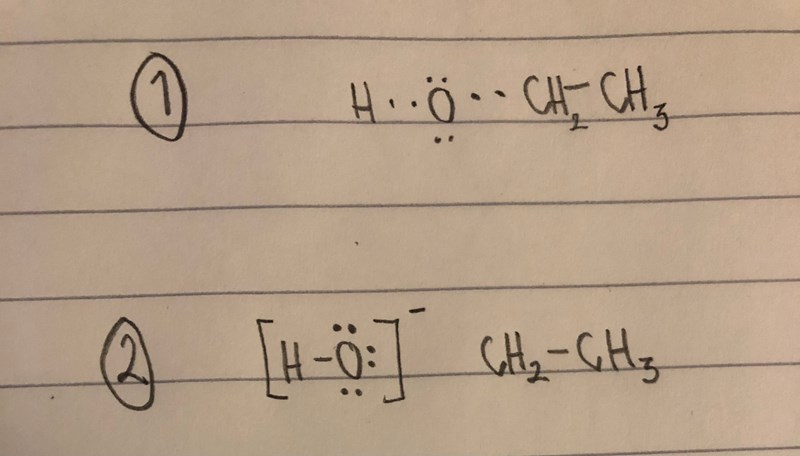 ① H··Ö̤··CH₂-CH₃
② [H-Ö̤:]⁻ CH₂-CH₃